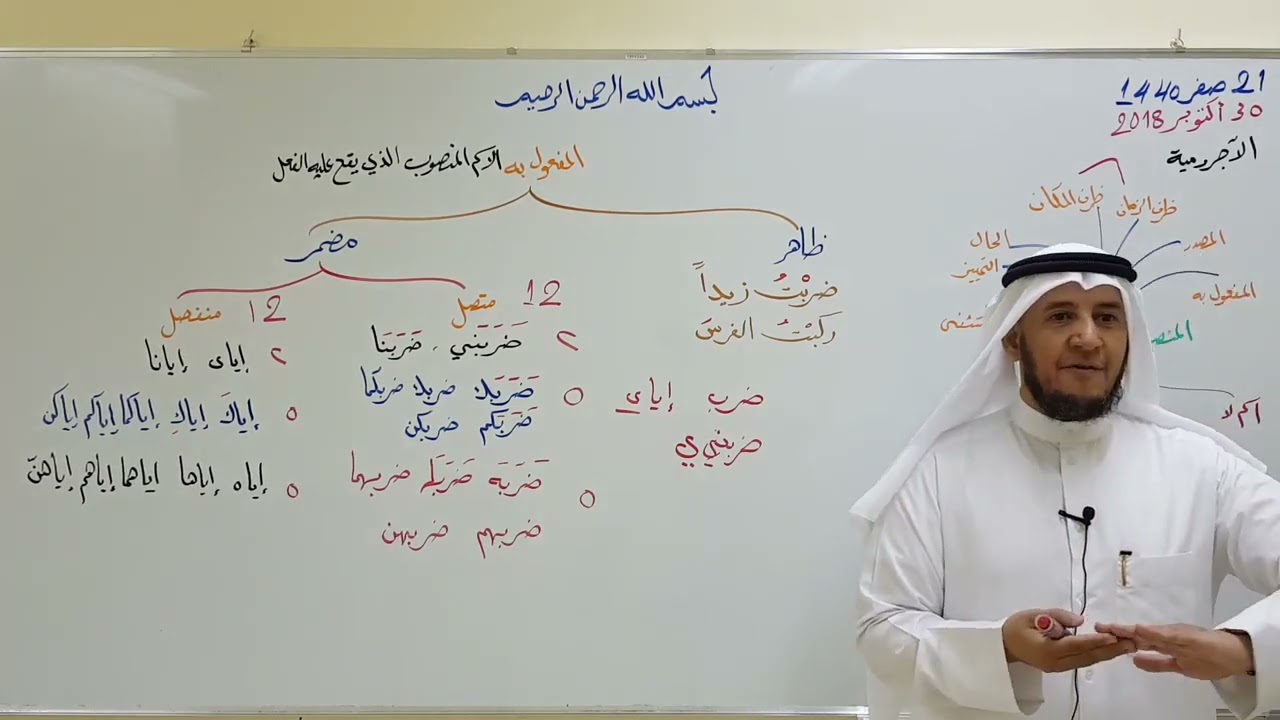 بسم الله الرحمن الرحيم
21 صفر 1440
30 أكتوبر 2018
الآجرومية
ظرف الزمان ظرف المكان
المصدر
الحال
المفعول به
التمييز
اسم لا
المفعول به الاسم المنصوب الذي يقع عليه الفعل
ظاهر
مضمر
ضربْتُ زيداً
ركبْتُ الفرسَ
ضرب إياي
ضربني ي
12 متصل
٢ ضَرَبَني، ضَرَبَنا
٥ ضَرَبَك ضربك ضربكما
ضَرَبَكم ضربكن
٥ ضَرَبَه ضَرَبَها ضربهما
ضربهم ضربهن
12 منفصل
٢ إياي إيانا
٥ إياكَ إياكِ إياكما إياكم إياكن
٥ إياه إياها اياهما إياهم إياهنّ